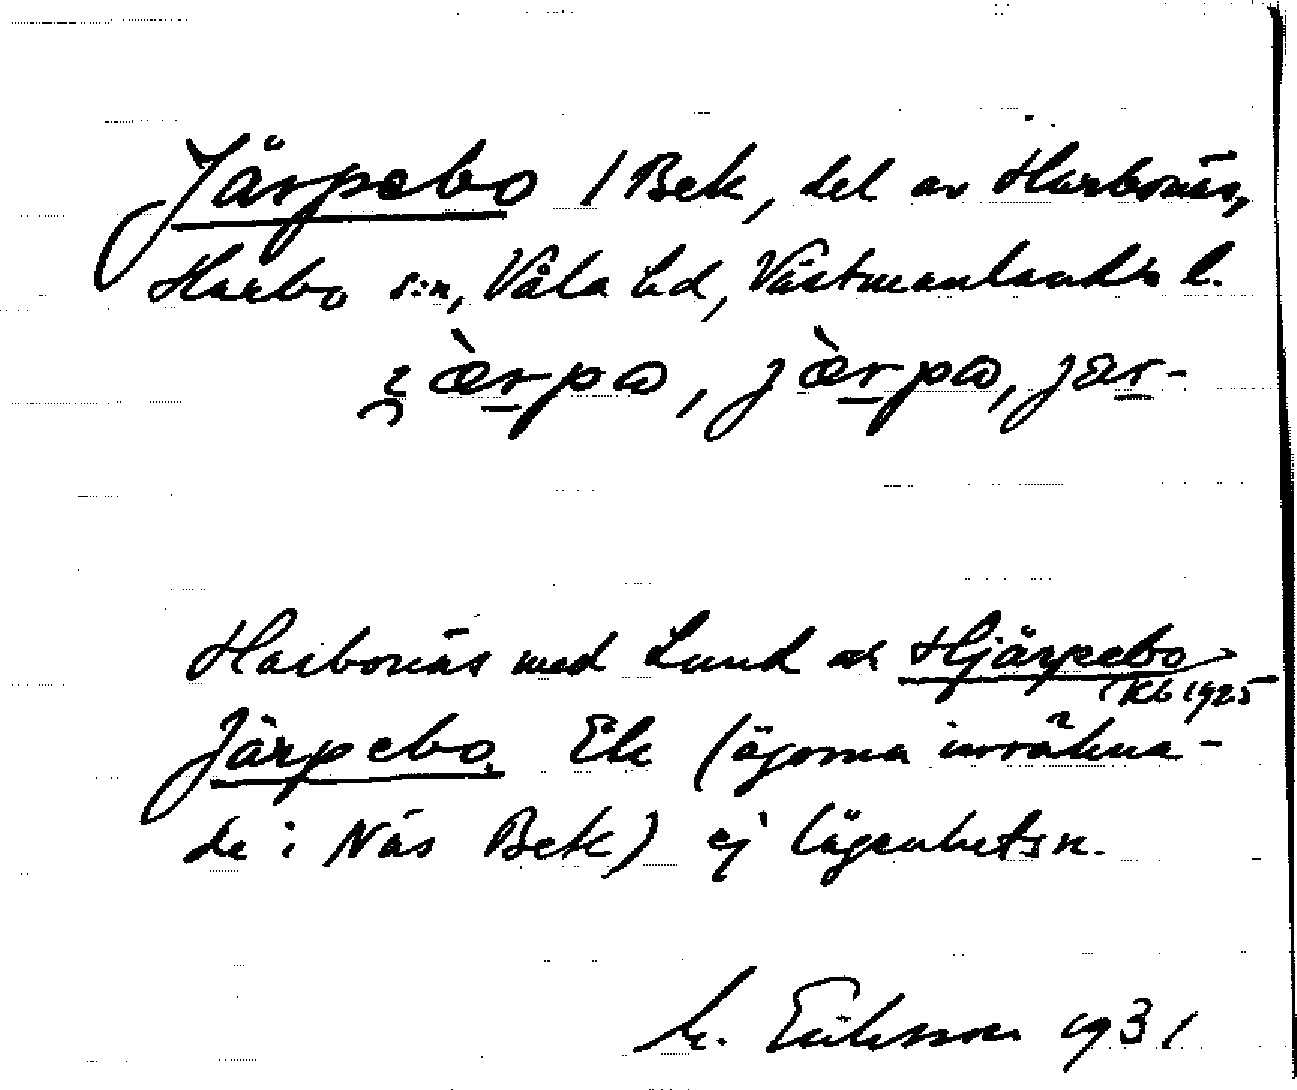 Järpebo 1 Bek, del av Harbonäs,
Harbo s:n, Våla hd, Västmanlands l.
jær-
Harbonäs med Lund och Hjärpebo
Kb 1925
Järpebo Ek (ägorna inräkna-
de i Näs Bek) ej lägenhetsn.
M. Eriksson 1931